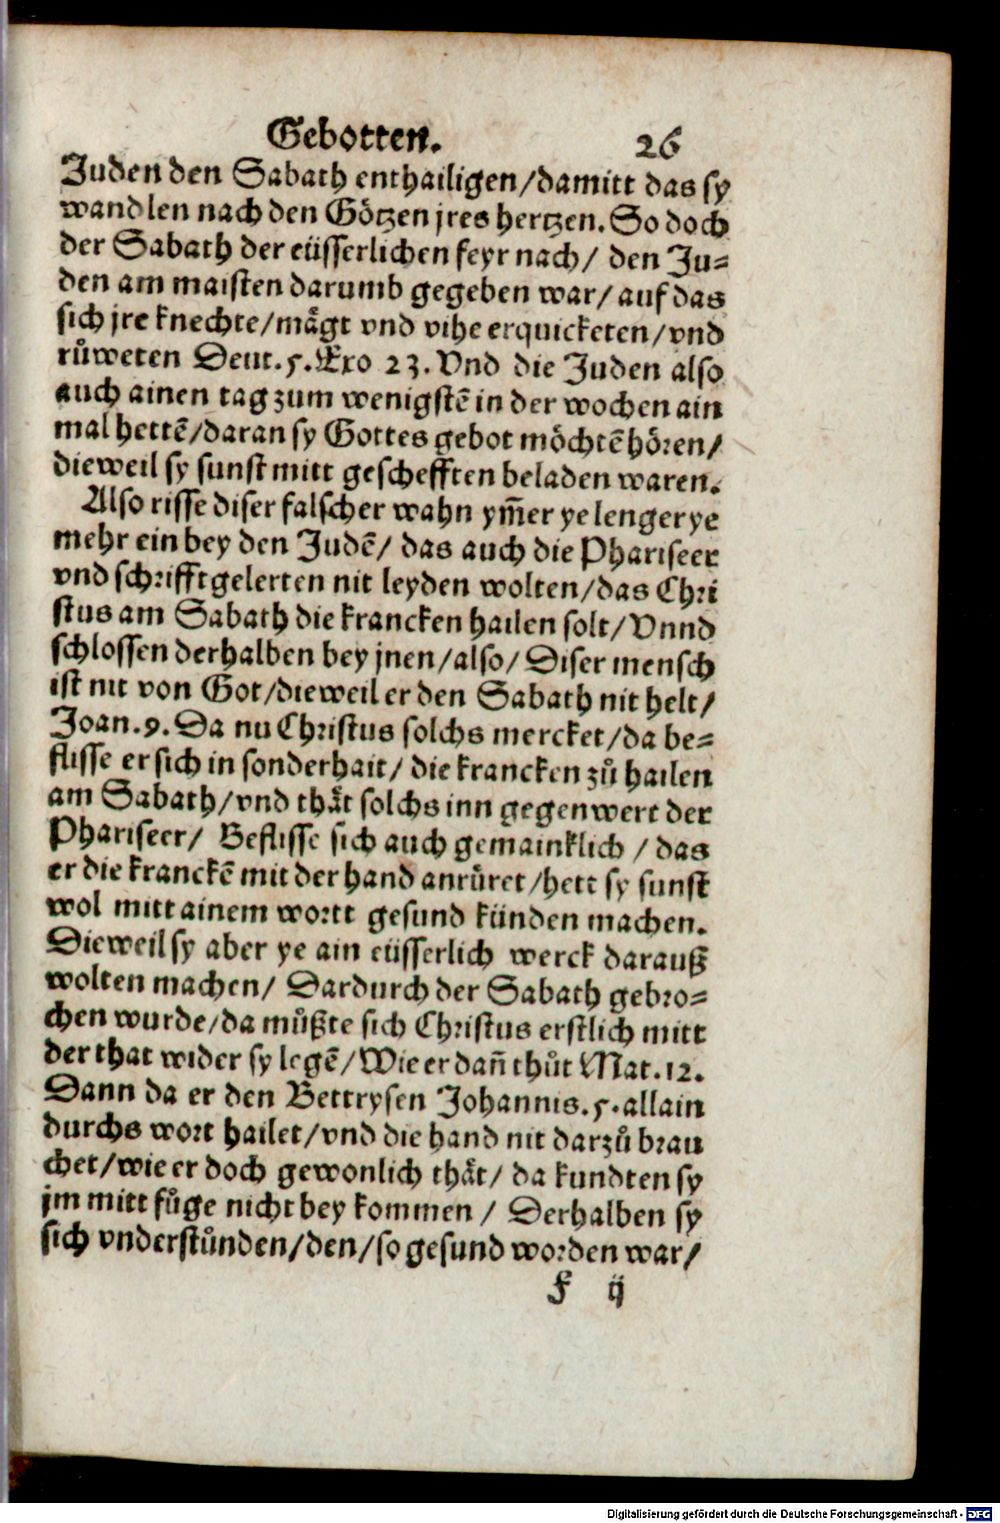 Gebotten. 26
Juden den Sabath enthailigen/damitt das sy
wandlen nach den Götzen jres hertzen. So doch
der Sabath der eüsserlichen feyr nach/ den Ju⸗
den am maisten darumb gegeben war/ auf das
sich jre knechte/mägt vnd vihe erquicketen/vnd
růweten Deut. 5. Exo 23. Vnd die Juden also
auch ainen tag zum wenigstē in der wochen ain
mal hettē/daran sy Gottes gebot möchtē hören/
dieweil sy sunst mitt geschefften beladen waren.
Also risse diser falscher wahn ym̄er ye lenger ye
mehr ein bey den Judē/ das auch die Phariseer
vnd schrifftgelerten nit leyden wolten/das Chri
stus am Sabath die krancken hailen solt/ Vnnd
schlossen derhalben bey jnen/also/ Diser mensch
ist nit von Got/dieweil er den Sabath nit helt/
Joan. 9. Da nu Christus solchs mercket/da be⸗
flisse er sich in sonderhait/ die krancken zů hailen
am Sabath/vnd thät solchs inn gegenwert der
Phariseer/ Beflisse sich auch gemainklich / das
er die kranckē mit der hand anrůret/hett sy sunst
wol mitt ainem wortt gesund künden machen.
Dieweil sy aber ye ain eüsserlich werck darauß
wolten machen/ Dardurch der Sabath gebro⸗
chen wurde/da můßte sich Christus erstlich mitt
der that wider sy legē/Wie er dan̄ thůt Mat. 12.
Dann da er den Bettrysen Johannis. 5. allain
durchs wort hailet/vnd die hand nit darzů brau
chet/wie er doch gewonlich thät/ da kundten sy
jm mitt fůge nicht bey kommen / Derhalben sy
sich vnderstůnden/den/so gesund worden war/
f ij
Digitalisierung gefördert durch die Deutsche Forschungsgemeinschaft - DFG